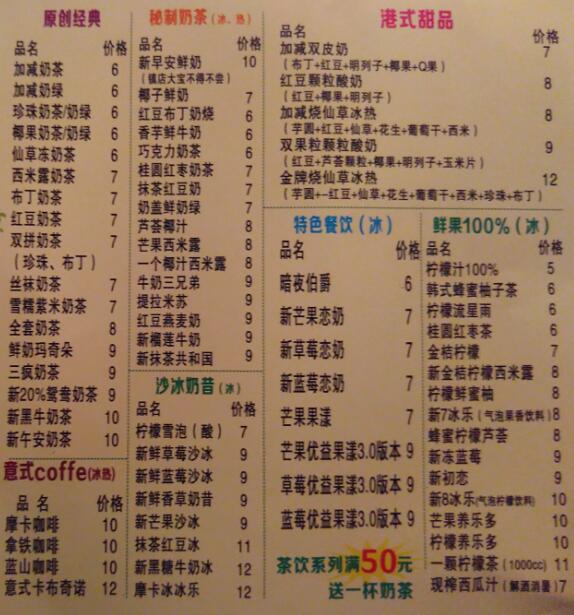 原创经典
品名 价格
加减奶茶 6
加减奶绿 6
珍珠奶茶/奶绿 6
椰果奶茶/奶绿 6
仙草冻奶茶 6
西米露奶茶 7
布丁奶茶 7
红豆奶茶 7
双拼奶茶 7
（珍珠、布丁）
丝袜奶茶 7
雪糯紫米奶茶 7
全套奶茶 8
鲜奶玛奇朵 9
三疯奶茶 9
新20%鸳鸯奶茶 9
新黑牛奶茶 10
新午安奶茶 10
意式coffe(冰热)
品名 价格
摩卡咖啡 10
拿铁咖啡 10
蓝山咖啡 10
意式卡布奇诺 12
秘制奶茶（冰、热）
品名 价格
新早安鲜奶 10
（镇店大宝不得不尝）
椰子鲜奶 7
红豆布丁奶烧 6
香芋鲜牛奶 6
巧克力奶茶 6
桂圆红枣奶茶 7
抹茶红豆奶 7
奶盖鲜奶绿 7
芦荟椰汁 8
芒果西米露 8
一个椰汁西米露 8
牛奶三兄弟 9
提拉米苏 9
红豆燕麦奶 9
新榴莲牛奶 9
新抹茶共和国 9
沙冰奶昔（冰）
品名 价格
柠檬雪泡（酸） 7
新鲜草莓沙冰 9
新鲜蓝莓沙冰 9
新鲜香草奶昔 9
新芒果沙冰 9
抹茶红豆冰 11
新黑糖牛奶冰 12
摩卡冰冰乐 12
港式甜品
品名 价格
加减双皮奶 7
（布丁+红豆+明列子+椰果+Q果）
红豆颗粒酸奶 8
（红豆+椰果+明列子）
加减烧仙草冰热 8
（芋圆+红豆+仙草+花生+葡萄干+西米）
双果粒颗粒酸奶 9
（红豆+芦荟颗粒+椰果+明列子+玉米片）
金牌烧仙草冰热 12
（芋圆+—红豆+仙草+花生+葡萄干+西米+珍珠+布丁）
特色餐饮（冰）
品名 价格
暗夜伯爵 6
新芒果恋奶 7
新草莓恋奶 7
新蓝莓恋奶 7
芒果果漾 7
芒果优益果漾3.0版本 9
草莓优益果漾3.0版本 9
蓝莓优益果漾3.0版本 9
茶饮系列满50元
送一杯奶茶
鲜果100%（冰）
品名 价格
柠檬汁100% 5
韩式蜂蜜柚子茶 6
柠檬流星雨 6
桂圆红枣茶 6
金桔柠檬 7
新金桔柠檬西米露 8
柠檬鲜蜜柚 8
新7冰乐（气泡果香饮料）8
蜂蜜柠檬芦荟 8
新冻蓝莓 9
新初恋 9
新8冰乐(气泡柠檬饮料) 10
芒果养乐多 10
柠檬养乐多 10
一颗柠檬茶（1000cc） 11
现榨西瓜汁（解酒消暑）7